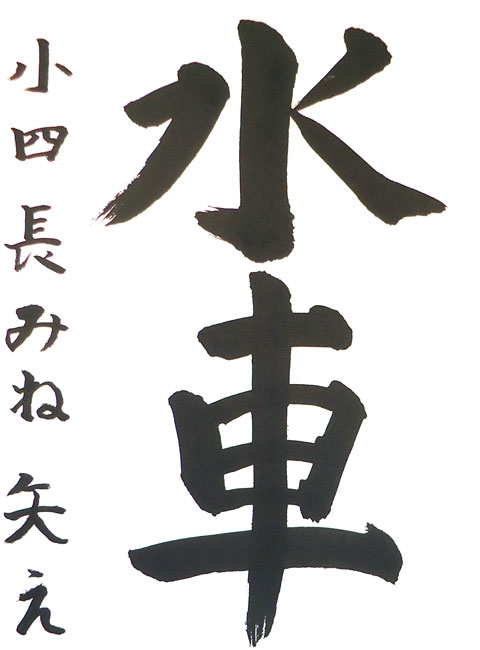 水車
小四 長みね 矢え